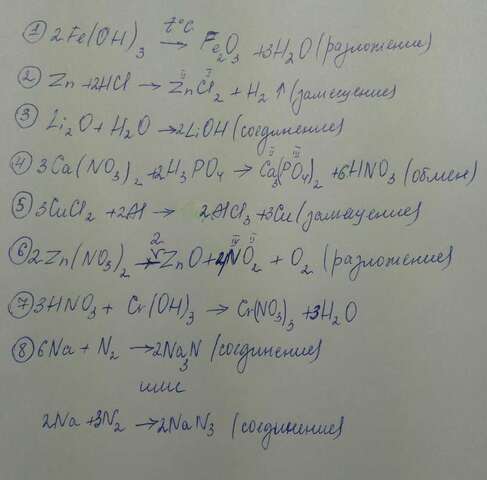 ① 2Fe(OH)₃ →(t°C) Fe₂O₃ + 3H₂O (разложение)
② Zn + 2HCl → ZnCl₂ (II I) + H₂↑ (замещение)
③ Li₂O + H₂O → 2LiOH (соединение)
④ 3Ca(NO₃)₂ + 2H₃PO₄ → Ca₃(PO₄)₂ (II III) + 6HNO₃ (обмен)
⑤ 3CuCl₂ + 2Al → 2AlCl₃ + 3Cu (замещение)
⑥ 2Zn(NO₃)₂ → 2ZnO + 4NO₂ (IV II) + O₂ (разложение)
⑦ 3HNO₃ + Cr(OH)₃ → Cr(NO₃)₃ + 3H₂O
⑧ 6Na + N₂ → 2Na₃N (соединение)
или
2Na + 3N₂ → 2NaN₃ (соединение)